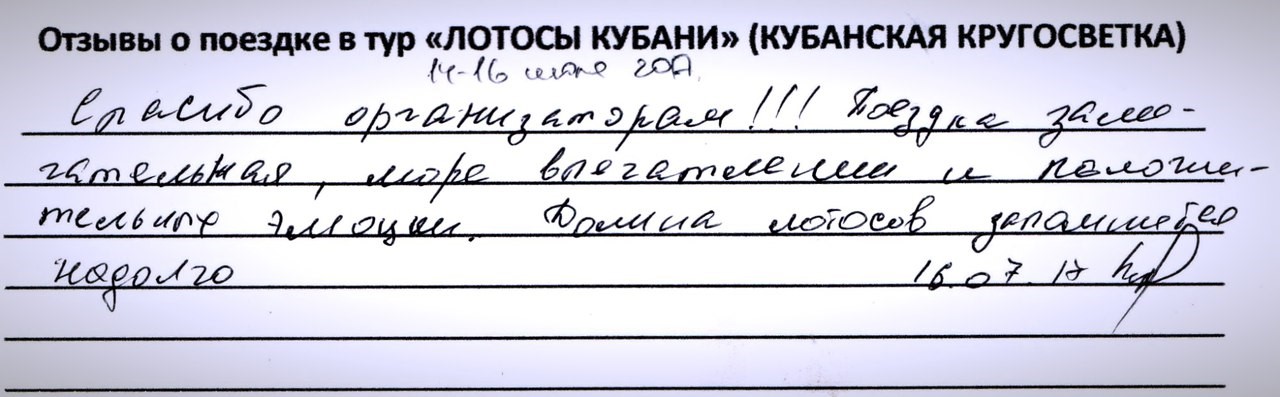 Отзывы о поездке в тур «ЛОТОСЫ КУБАНИ» (КУБАНСКАЯ КРУГОСВЕТКА)
14-16 июля 2017
Спасибо организаторам!!! Поездка заме-
чательная, море впечатлении и положи-
тельные эмоции. Долина лотосов запомнится
надолго 16.07.17